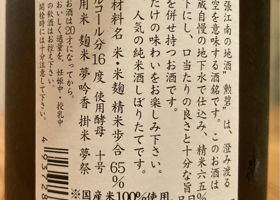 張江南の地酒 勲碧」は、澄み渡る
空を意味する酒銘です。このお酒は
蔵自慢の地下水で仕込み、精米六五%
下にし、口当たりの良さと十分な旨
を併せ持つお酒です。
だけの味わいをお楽しみ下さい。
人気の純米酒しぼりたてです。
材料名 米・米麹 精米歩合 65%
ルコール分 16度 使用酵母 十号
用米 麹米 夢吟香 掛米 夢祭
お酒は20才になってから。
おいしく適量を。妊娠中、授乳中
の飲酒はお控え下さい。
開栓時には十分注意して下さ
※国産米100%使用
4972